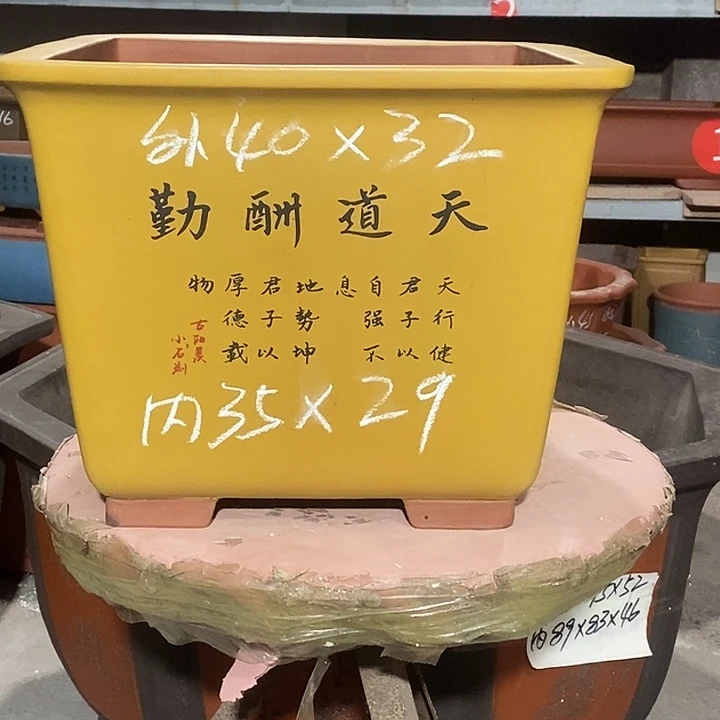 外40×32
天道酬勤
天行健
君子以
自强不
息
地势坤
君子以
厚德载
物
小石刻
内35×29
15×52
内89×83×46
16